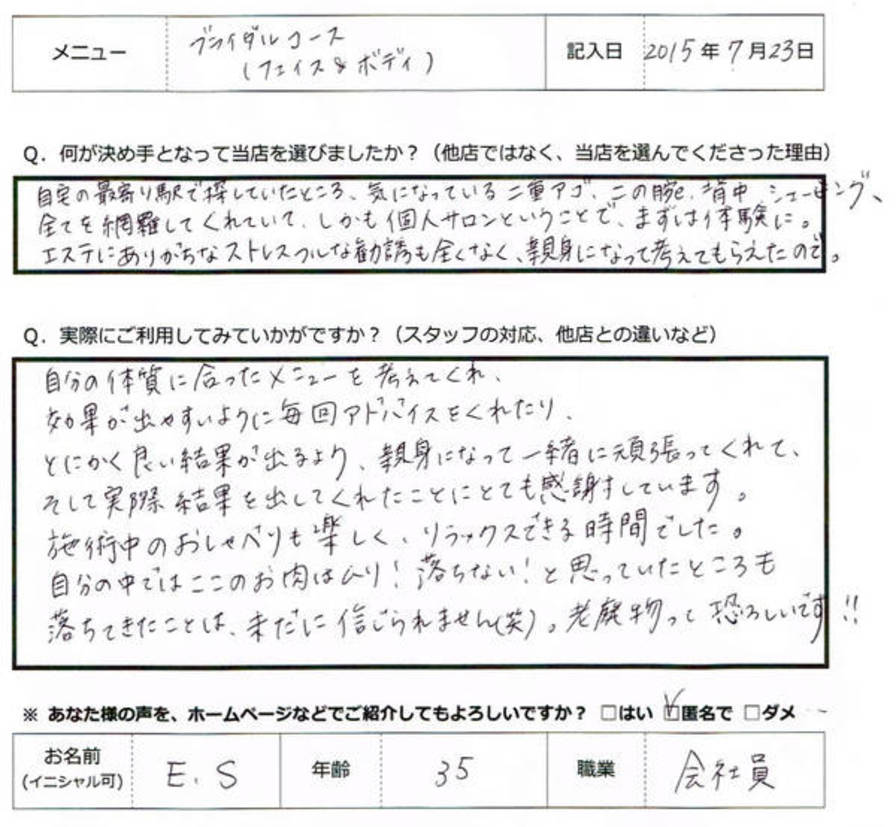 メニュー ブライダルコース
(フェイス&ボディ)
記入日 2015年7月23日
Q. 何が決め手となって当店を選びましたか？（他店ではなく、当店を選んでくださった理由）
自宅の最寄り駅で探していたところ、気になっている二重アゴ、二の腕、背中、シェービング、
全てを網羅してくれていて、しかも個人サロンということで、まずは体験に。
エステにありがちなストレスフルな勧誘も全くなく、親身になって考えてもらえたので。
Q. 実際にご利用してみていかがですか？（スタッフの対応、他店との違いなど）
自分の体質に合ったメニューを考えてくれ、
効果が出やすいように毎回アドバイスをくれたり、
とにかく良い結果が出るよう、親身になって一緒に頑張ってくれて、
そして実際結果を出してくれたことにとても感謝しています。
施術中のおしゃべりも楽しく、リラックスできる時間でした。
自分の中ではここのお肉はムリ！落ちない！と思っていたところも
落ちてきたことは、未だに信じられません(笑)。老廃物って恐ろしいです!!
※ あなた様の声を、ホームページなどでご紹介してもよろしいですか？ □はい ☑匿名で □ダメ
お名前 (イニシャル可) E.S 年齢 35 職業 会社員